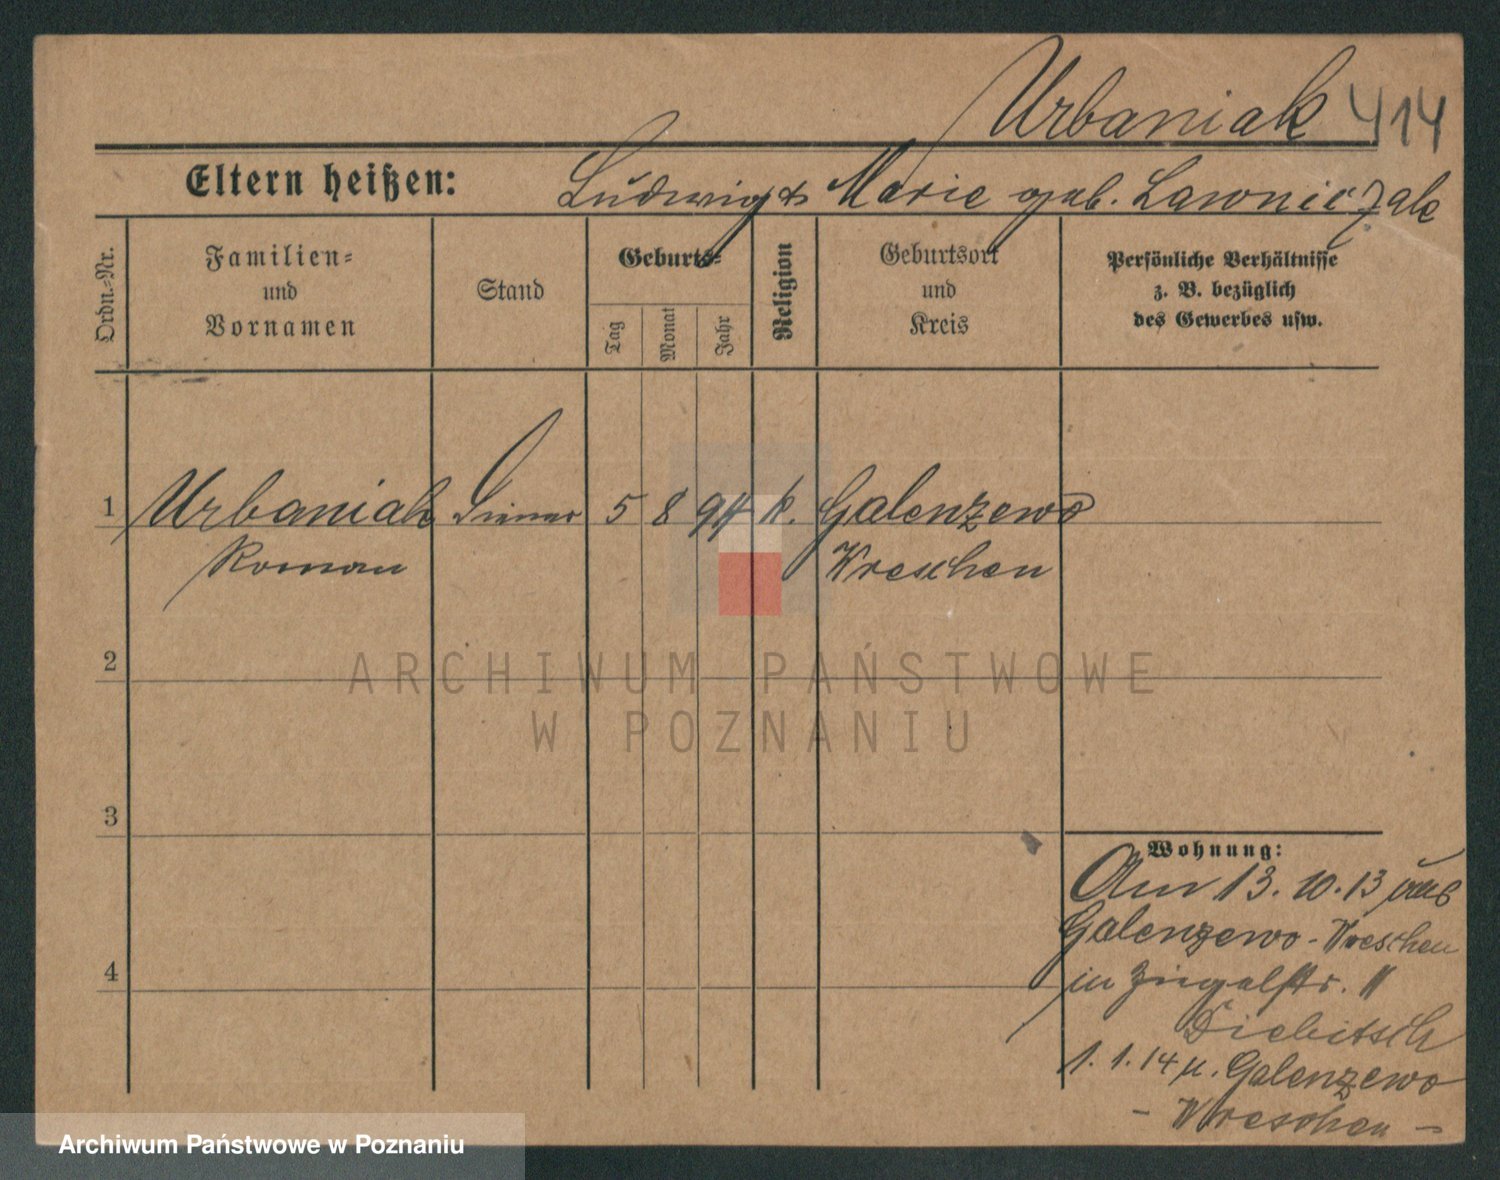 Urbaniak 414
Eltern heißen: Ludwig & Marie geb. Lawniczak
Ordn.-Nr.
Familien-
und
Vornamen
Stand
Geburts-
Tag
Monat
Jahr
Religion
Geburtsort
und
Kreis
Persönliche Verhältnisse
z. B. bezüglich
des Gewerbes usw.
1 Urbaniak Diener 5 8 94 k. Galenzewo
Roman Wreschen
2
ARCHIWUM PAŃSTWOWE
W POZNANIU
3
Wohnung:
Am 13. 10. 13 aus
Galenzewo - Wreschen
in Ziegelstr. 11
Diebitsch
1. 1. 14 n. Galenzewo
- Wreschen -
4
Archiwum Państwowe w Poznaniu